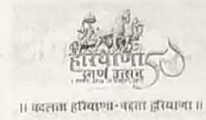 हरियाणा
स्वर्ण जयंती 50
॥ बदलता हरियाणा-बढ़ता हरियाणा ॥